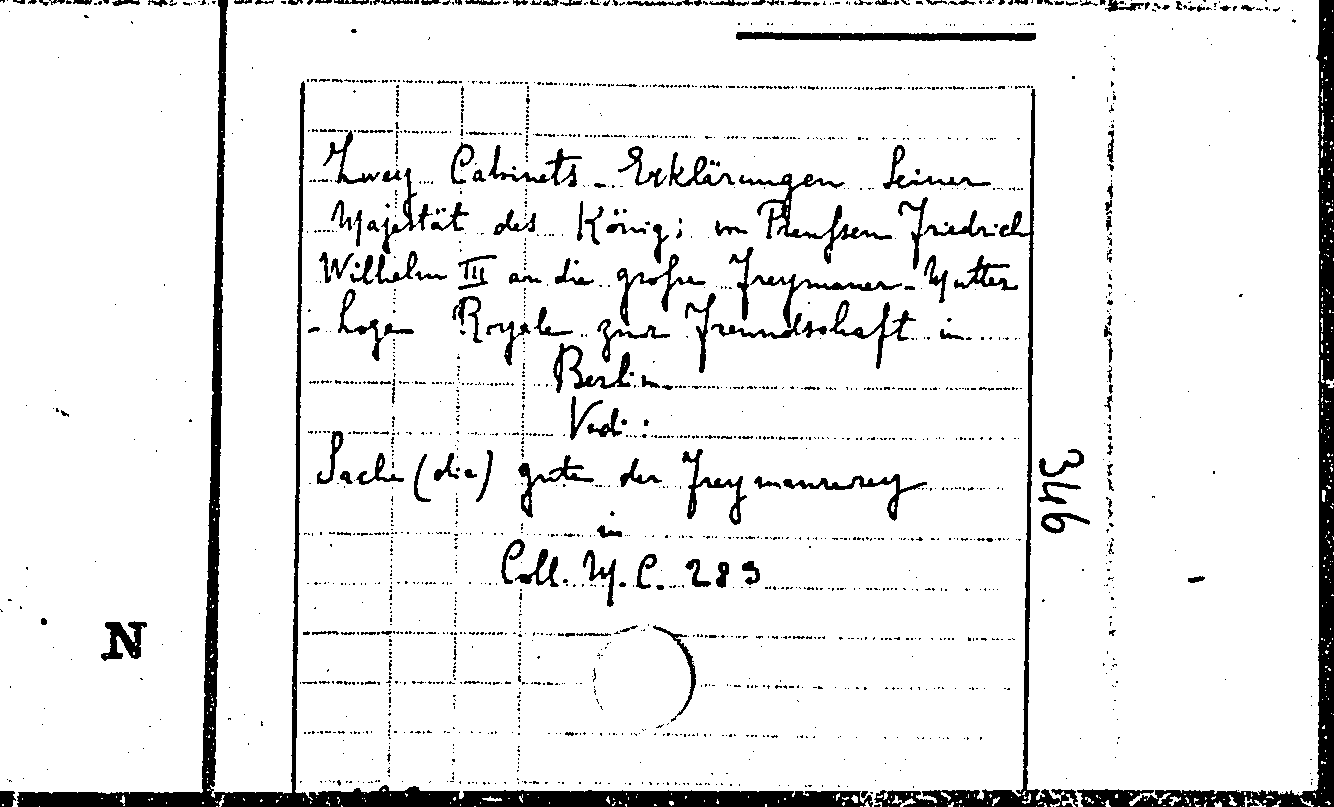 Zwey Cabinets-Erklärungen Seiner
Majestät des König; von Preussen Friedrich
Wilhelm III an die grosse Freymaurer-Mutter
-Loge Royale zur Freundschaft in
Berlin.
Vid. :
Sache (die) gute der Freymaurerey
in
Coll. M. C. 283
346
N